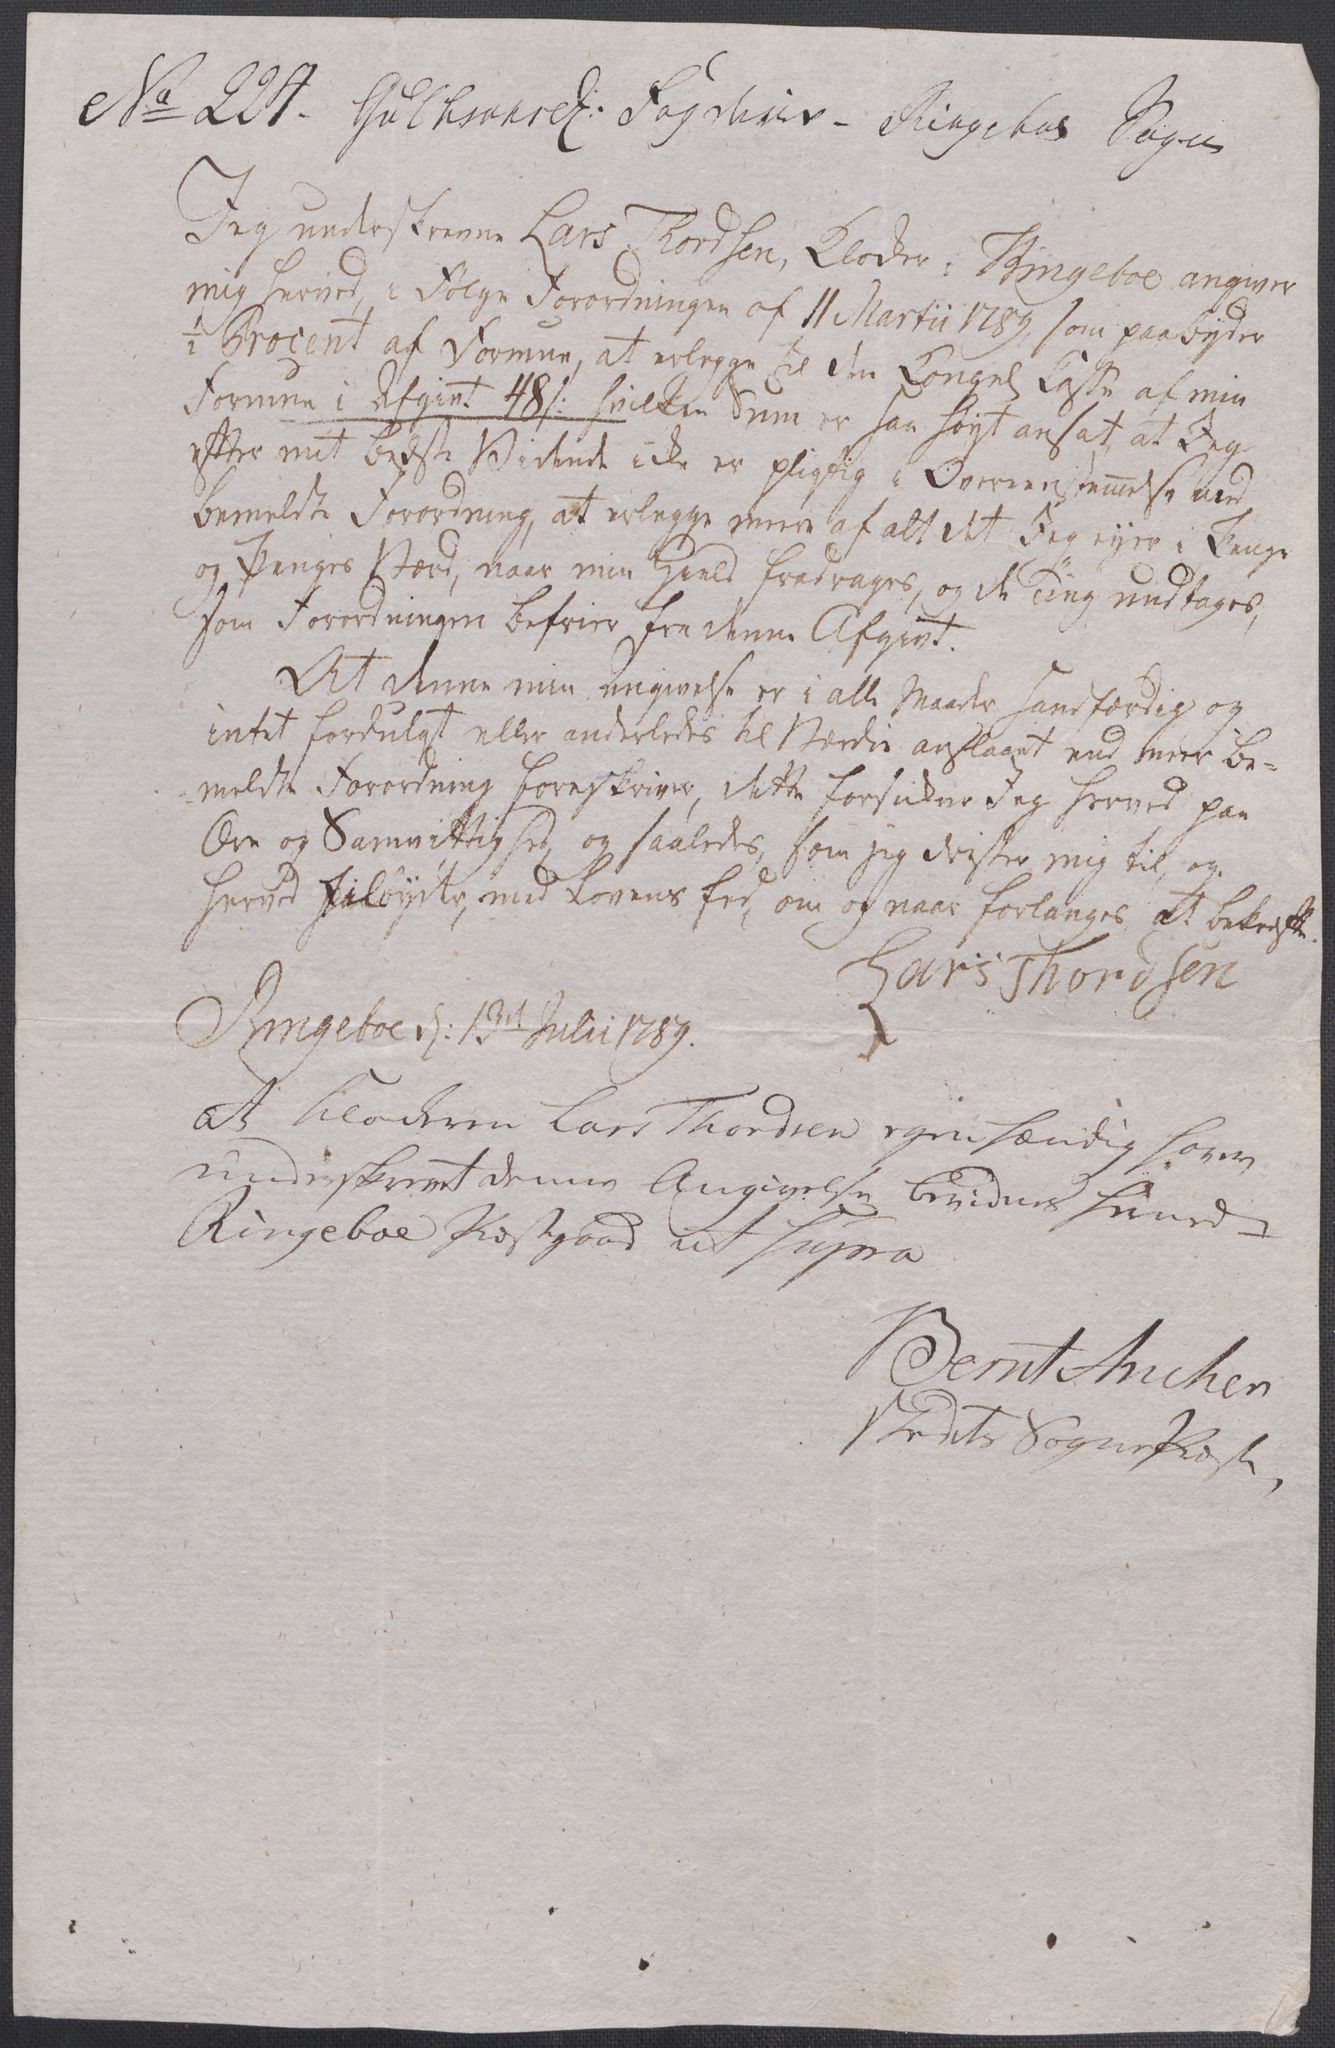 No 224. Gulbransd: Fogderie - Ringeboe Sogn
Jeg underskrevne Lars Thordsen, Klocker i Ringeboe angiver
mig herved, i Følge Forordningen af 11 Martii 1789, som paabyder
½ Procent af Formue, at erlegge til den Kongel Casse af min
Formue i Afgivt 48 s: hvilken Sum er saa høyt ansat, at Jeg
efter mit bedste Vidende icke er pligtig i Overeenstem̅else med
bemeldte Forordning, at erlegge meere af alt det Jeg eyer i Penge
og Penges Værd, naar min Gield fradrages, og de Ting undtages,
som Forordningen befrier fra denne Afgivt.
At denne min angivelse er i alle Maader sandfærdig og
intet fordulgt eller anderledes til Værdie anslaaet end meer be-
meldte Forordning foreskriver, dette forsikrer Jeg herved paa
Ære og Samvittighed, og saaledes, som jeg drister mig til, og
herved tilbyder, med Lovens Eed, om og naar forlanges, at bekræfte.
Lars Thordsen
Ringeboe d: 13de Julii 1789.
At Klockeren Lars Thordsen egenhændig haver
underskrevet denne Angivelse bevidnes herved
Ringeboe Præstgaard ut supra
Bernt Ancher
Stedets Sogne Præst,